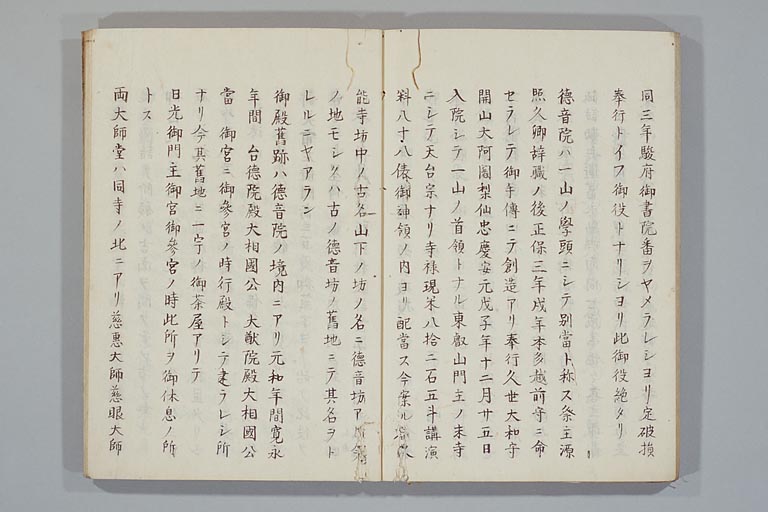 同三年駿府御書院番ヲヤメラレシヨリ定破損
奉行トイフ御役トナリシヨリ此御役絶タリ
德音院ハ一山ノ學頭ニシテ別當ト称ス祭主源
照久卿辞職ノ後正保三年戌年本多越前守ニ命
セラレテ御寺傳ニテ創造アリ奉行久世大和守
開山大阿闍梨仙忠慶安元戊子年十二月廿五日
入院シテ一山ノ首領トナル東叡山門主ノ末寺
ニシテ天台宗ナリ寺禄現米八拾二石五斗講演
料八十八俵御神領ノ内ヨリ配當ス今案ル
能寺坊中ノ古名山下ノ坊ノ名ニ德音坊ア
ノ地モシクハ古ノ德音坊ノ舊地ニテ其名ヲト
レルニヤアラン
御殿舊跡ハ德音院ノ境内ニアリ元和年間寛永
年間 台德院殿大相國公 大猷院殿大相國公
當 御宮ニ御參宮ノ時行殿トシテ建ラレシ所
ナリ今其舊地ニ一宇ノ御茶屋アリテ
日光御門主御宮御參宮ノ時此所ヲ御休息ノ所
トス
両大師堂ハ同寺ノ北ニアリ慈惠大師慈眼大師